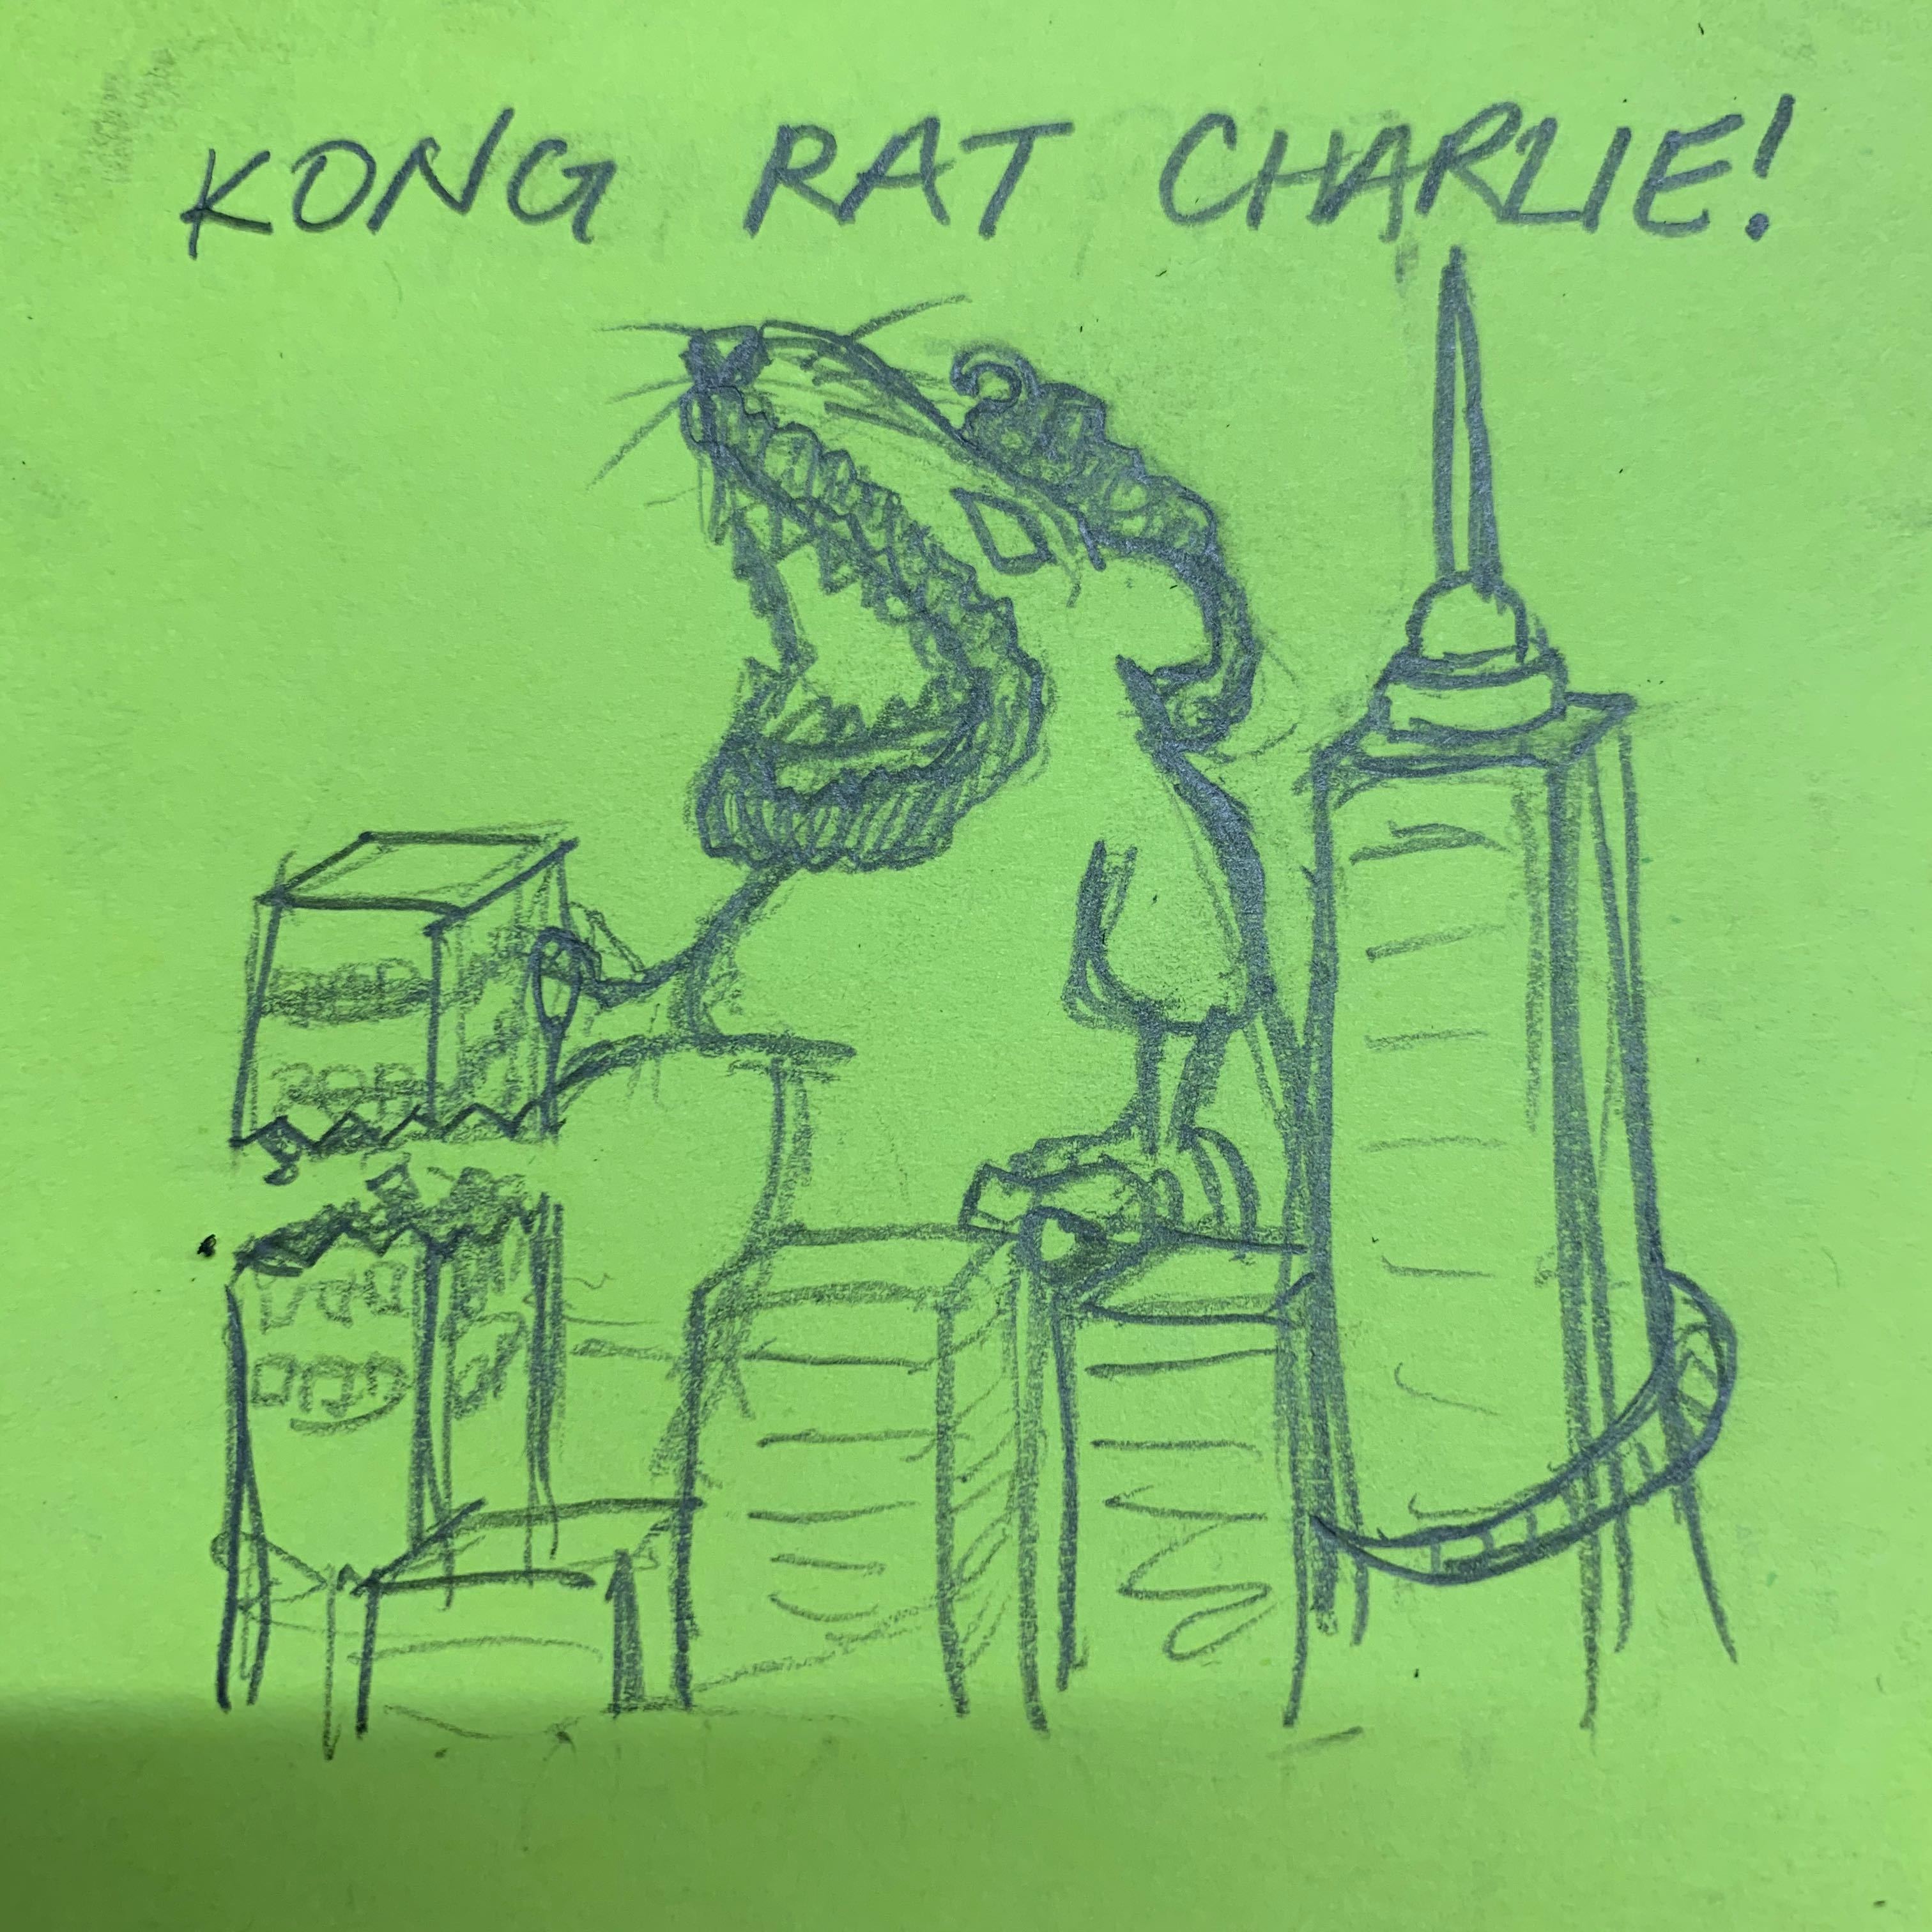 KONG RAT CHARLIE!